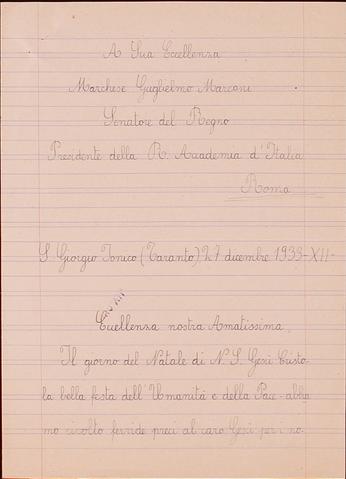 A Sua Eccellenza
Marchese Guglielmo Marconi
Senatore del Regno
Presidente della R. Accademia d'Italia
Roma
S. Giorgio Jonico (Taranto) 27 dicembre 1933-XII-
Eccellenza nostra Amatissima,
Il giorno del Natale di N. S. Gesù Cristo-
la bella festa dell'Umanità e della Pace-abbia
mo rivolto fervide preci al caro Gesù per i no-